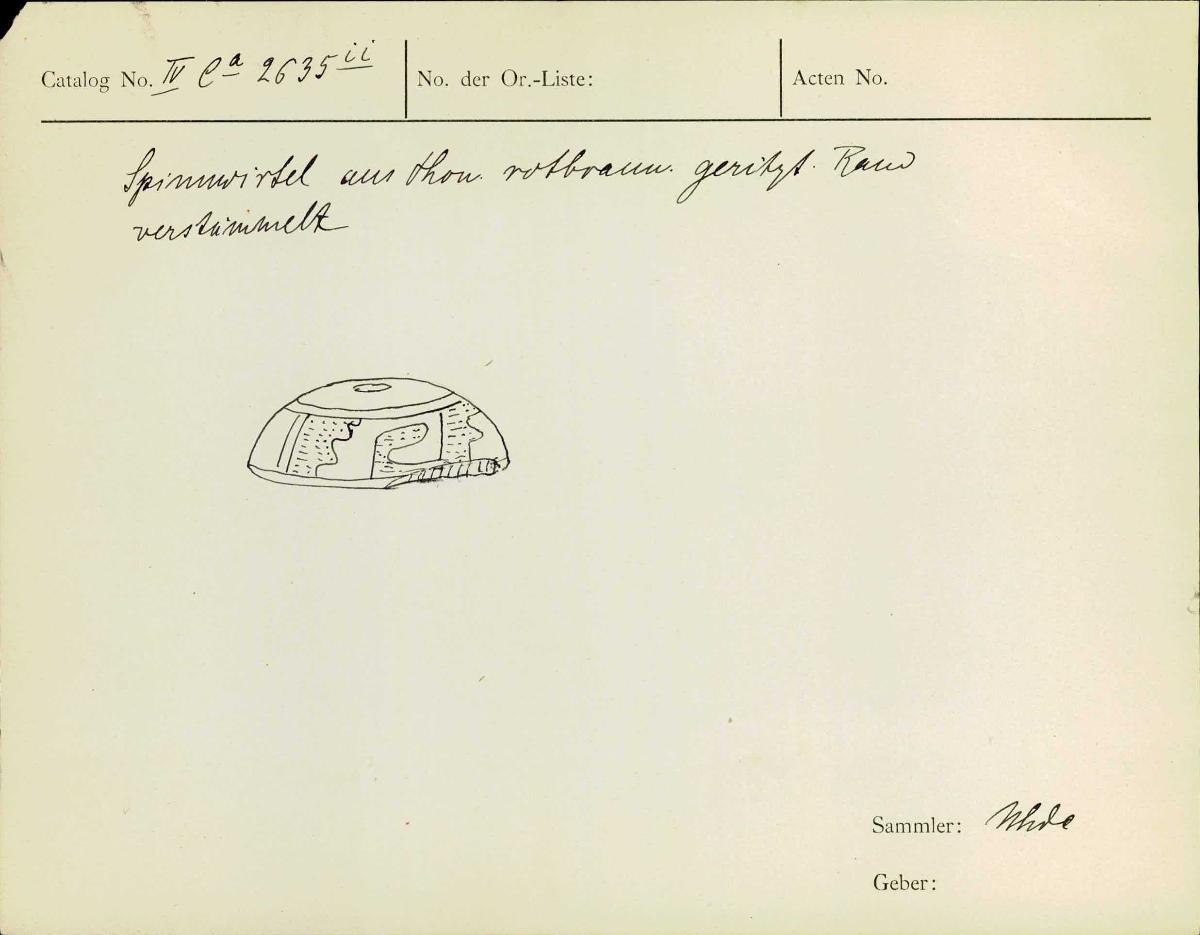 Catalog No. IV Ca 2635 ii
No. der Or.-Liste:
Acten No.
Spinnwirtel aus Thon. rotbraun. geritzt. Rand
verstümmelt
Sammler: Uhde
Geber: